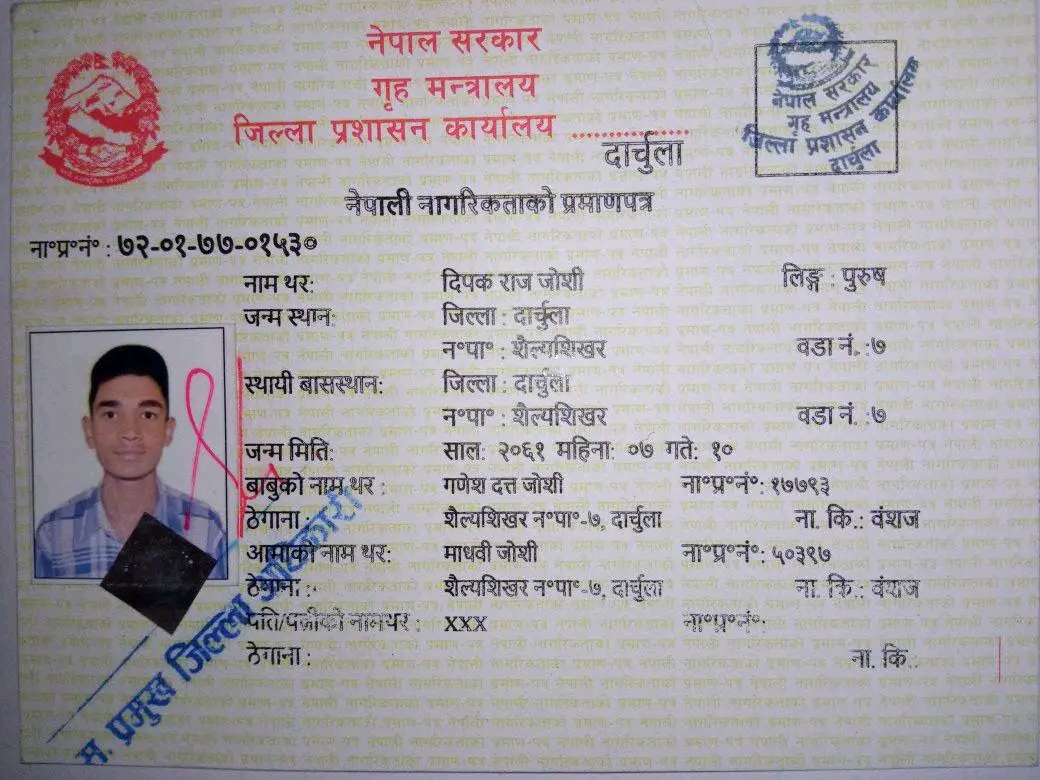 नेपाल सरकार
गृह मन्त्रालय
जिल्ला प्रशासन कार्यालय ..................
दार्चुला
नेपाल सरकार
गृह मन्त्रालय
जिल्ला प्रशासन कार्यालय
दार्चुला
नेपाली नागरिकताको प्रमाणपत्र
ना॰प्र॰नं॰ : ७२-०१-७७-०१५३०
नाम थर: दिपक राज जोशी लिङ्ग : पुरुष
जन्म स्थान: जिल्ला : दार्चुला
न॰पा॰ : शैल्यशिखर वडा नं. :७
स्थायी बासस्थान: जिल्ला : दार्चुला
न॰पा॰ : शैल्यशिखर वडा नं :७
जन्म मिति: साल: २०६१ महिना: ०७ गते: १०
बाबुको नाम थर : गणेश दत्त जोशी ना॰प्र॰नं॰: १७७९३
ठेगाना : शैल्यशिखर न॰पा॰-७, दार्चुला ना. कि.: वंशज
आमाको नाम थर: माधवी जोशी ना॰प्र॰नं॰: ५०३९७
ठेगाना : शैल्यशिखर न॰पा॰-७, दार्चुला ना. कि.: वंशज
पति/पत्नीको नामथर : XXX ना॰प्र॰नं॰:
ठेगाना : ना. कि.:
स. प्रमुख जिल्ला अधिकारी